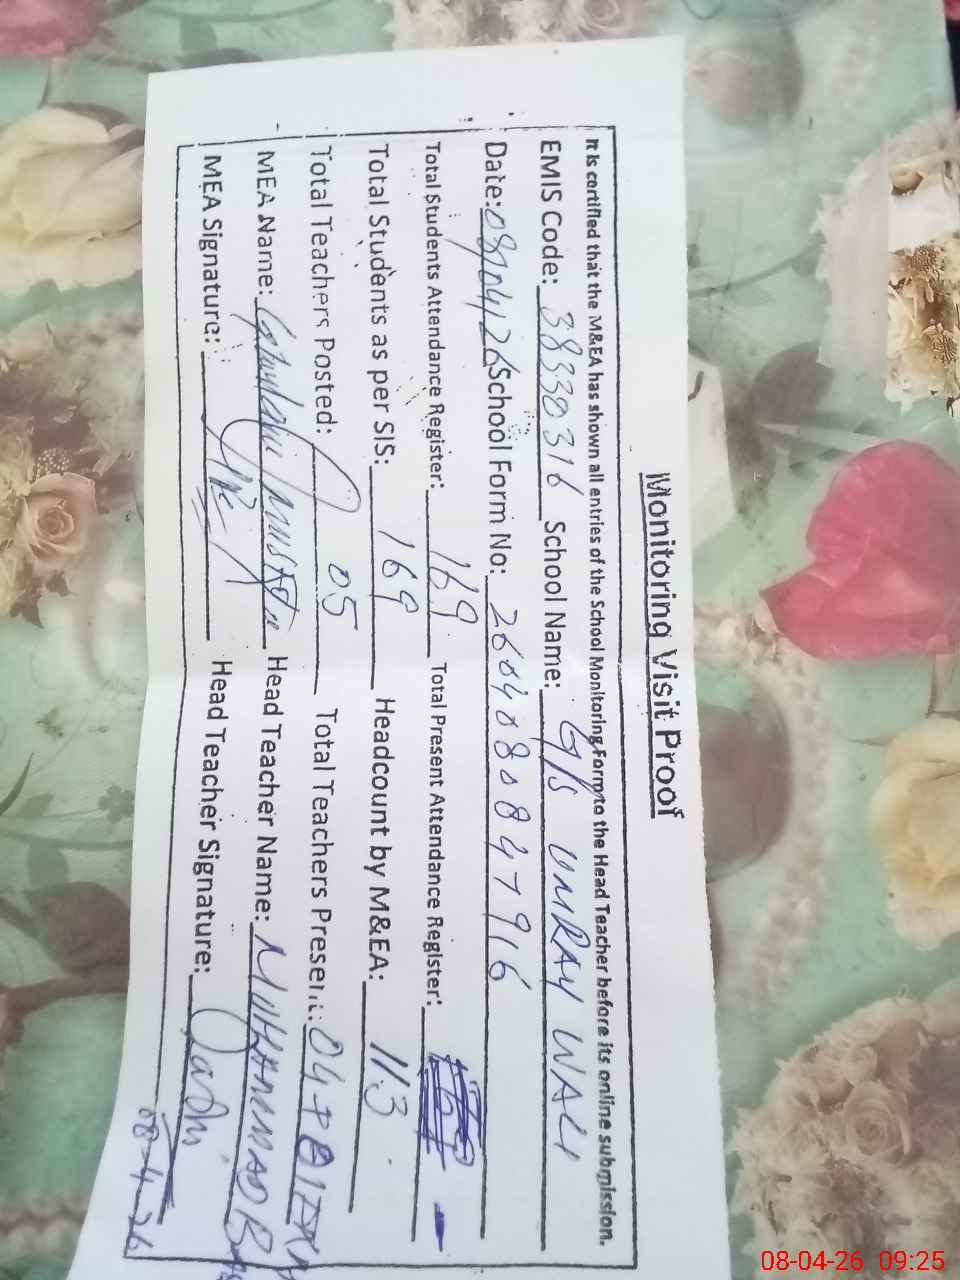 Monitoring Visit Proof
It is certified that the M&EA has shown all entries of the School Monitoring Form to the Head Teacher before its online submission.
EMIS Code: 38330316 School Name: G/S UMRAY WALI
Date: 08/04/26 School Form No: 2604080847916
Total Students Attendance Register: 169 Total Present Attendance Register: -
Total Students as per SIS: 169 Headcount by M&EA: 113
Total Teachers Posted: 05 Total Teachers Present: 04 +
MEA Name: Ghulam Mustafa Head Teacher Name: MUHAMMAD
MEA Signature: Head Teacher Signature:
08-4-26
08-04-26 09:25